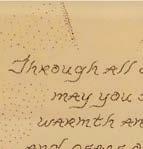 Through all
may you
warmth an
and